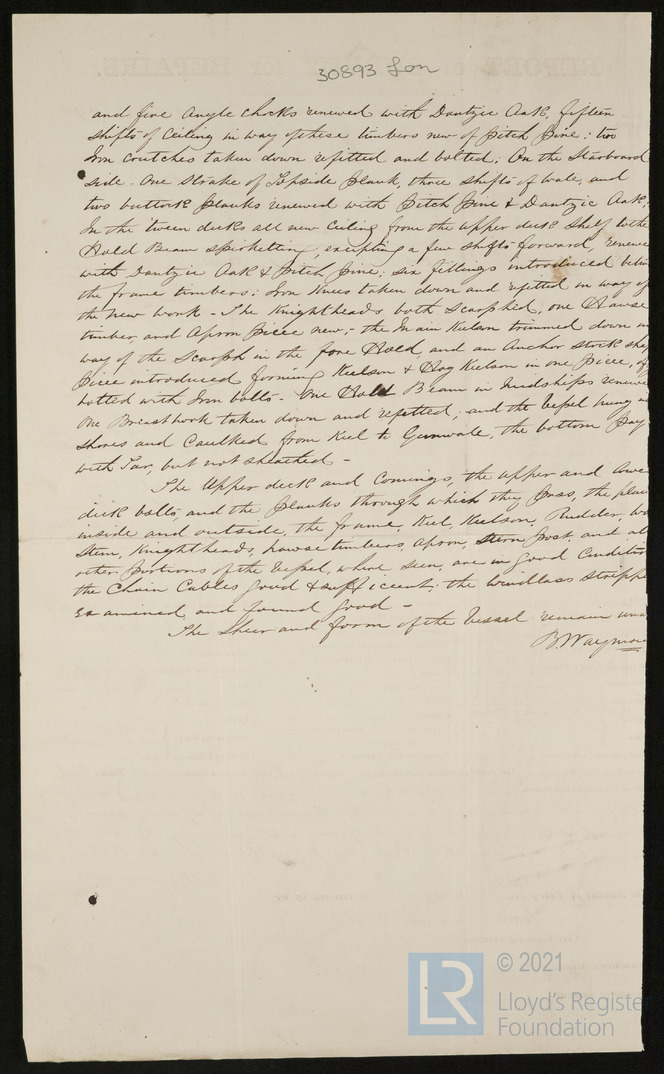 30893 Lon
and five Angle chocks renewed with Dantzic Oak, fifteen
shifts of Ceiling in way of these timbers new of Pitch Pine; two
Iron crutches taken down refitted and bolted; On the Starboard
side. One Strake of Topside plank, three shifts of wale, and
two buttock planks renewed with Pitch Pine & Dantzic Oak;
In the 'tween decks all new Ceiling from the upper deck Shelf to the
Hold Beam Spirketting, excepting a few shifts forward, renewe
with Dantzic Oak & Pitch Pine; six fillings introduced betw
the frame timbers; Iron Knees taken down and refitted in way of
the new work - The Knightheads both Scarphed, one Hawse
timber and Apron piece new; - the Main Kelson trimmed down in
way of the Scarph in the fore Hold, and an Anchor Stock sha
piece introduced forming Keelson & Hog Kelson in one piece,
bolted with Iron bolts - One Hold Beam in Midships renewe
One Breasthook taken down and refitted; and the Vessel hung in
Shores and Caulked from Keel to Gunwale, the bottom pay
with Tar, but not sheathed -
The Upper deck and Comings, the upper and Lowe
deck bolts, and the planks through which they pass, the plan
inside and outside, the frame, Keel, Keelson, Rudder,
Stem, Knightheads, hawse timbers, apron, Stern post, and al
other portions of the Vessel, where seen, are in good Condition
the Chain Cables good & sufficient; the windlass stripp
examined and found good -
The Sheer and form of the Vessel remain una
B. Waymou
LR
© 2021
Lloyd's Register
Foundation